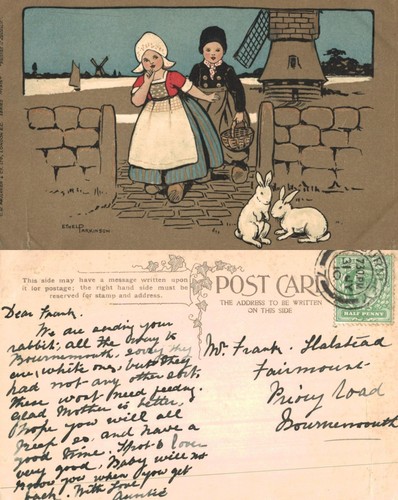 ETHEL PARKINSON.
This side may have a message written upon
it for postage; the right hand side must be
reserved for stamp and address.
POST CARD
THE ADDRESS TO BE WRITTEN
ON THIS SIDE
HALF PENNY
Dear Frank.
We are sending your
rabbits, all the way to
Bournemouth, sorry they
are, white ones, but they
had not any other sort,
these wont need feeding.
Glad Mother is better.
I hope you will all
keep so. and have a
good time. Spot is
very good. Baby will not
know you when you get
back. With Love
Auntie
Mr. Frank. Halstead
Fairmount
Priory Road
Bournemouth